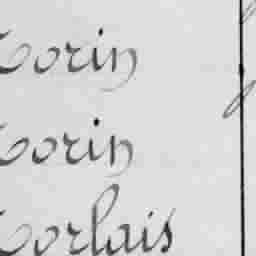 Corin
Corin
Corlais